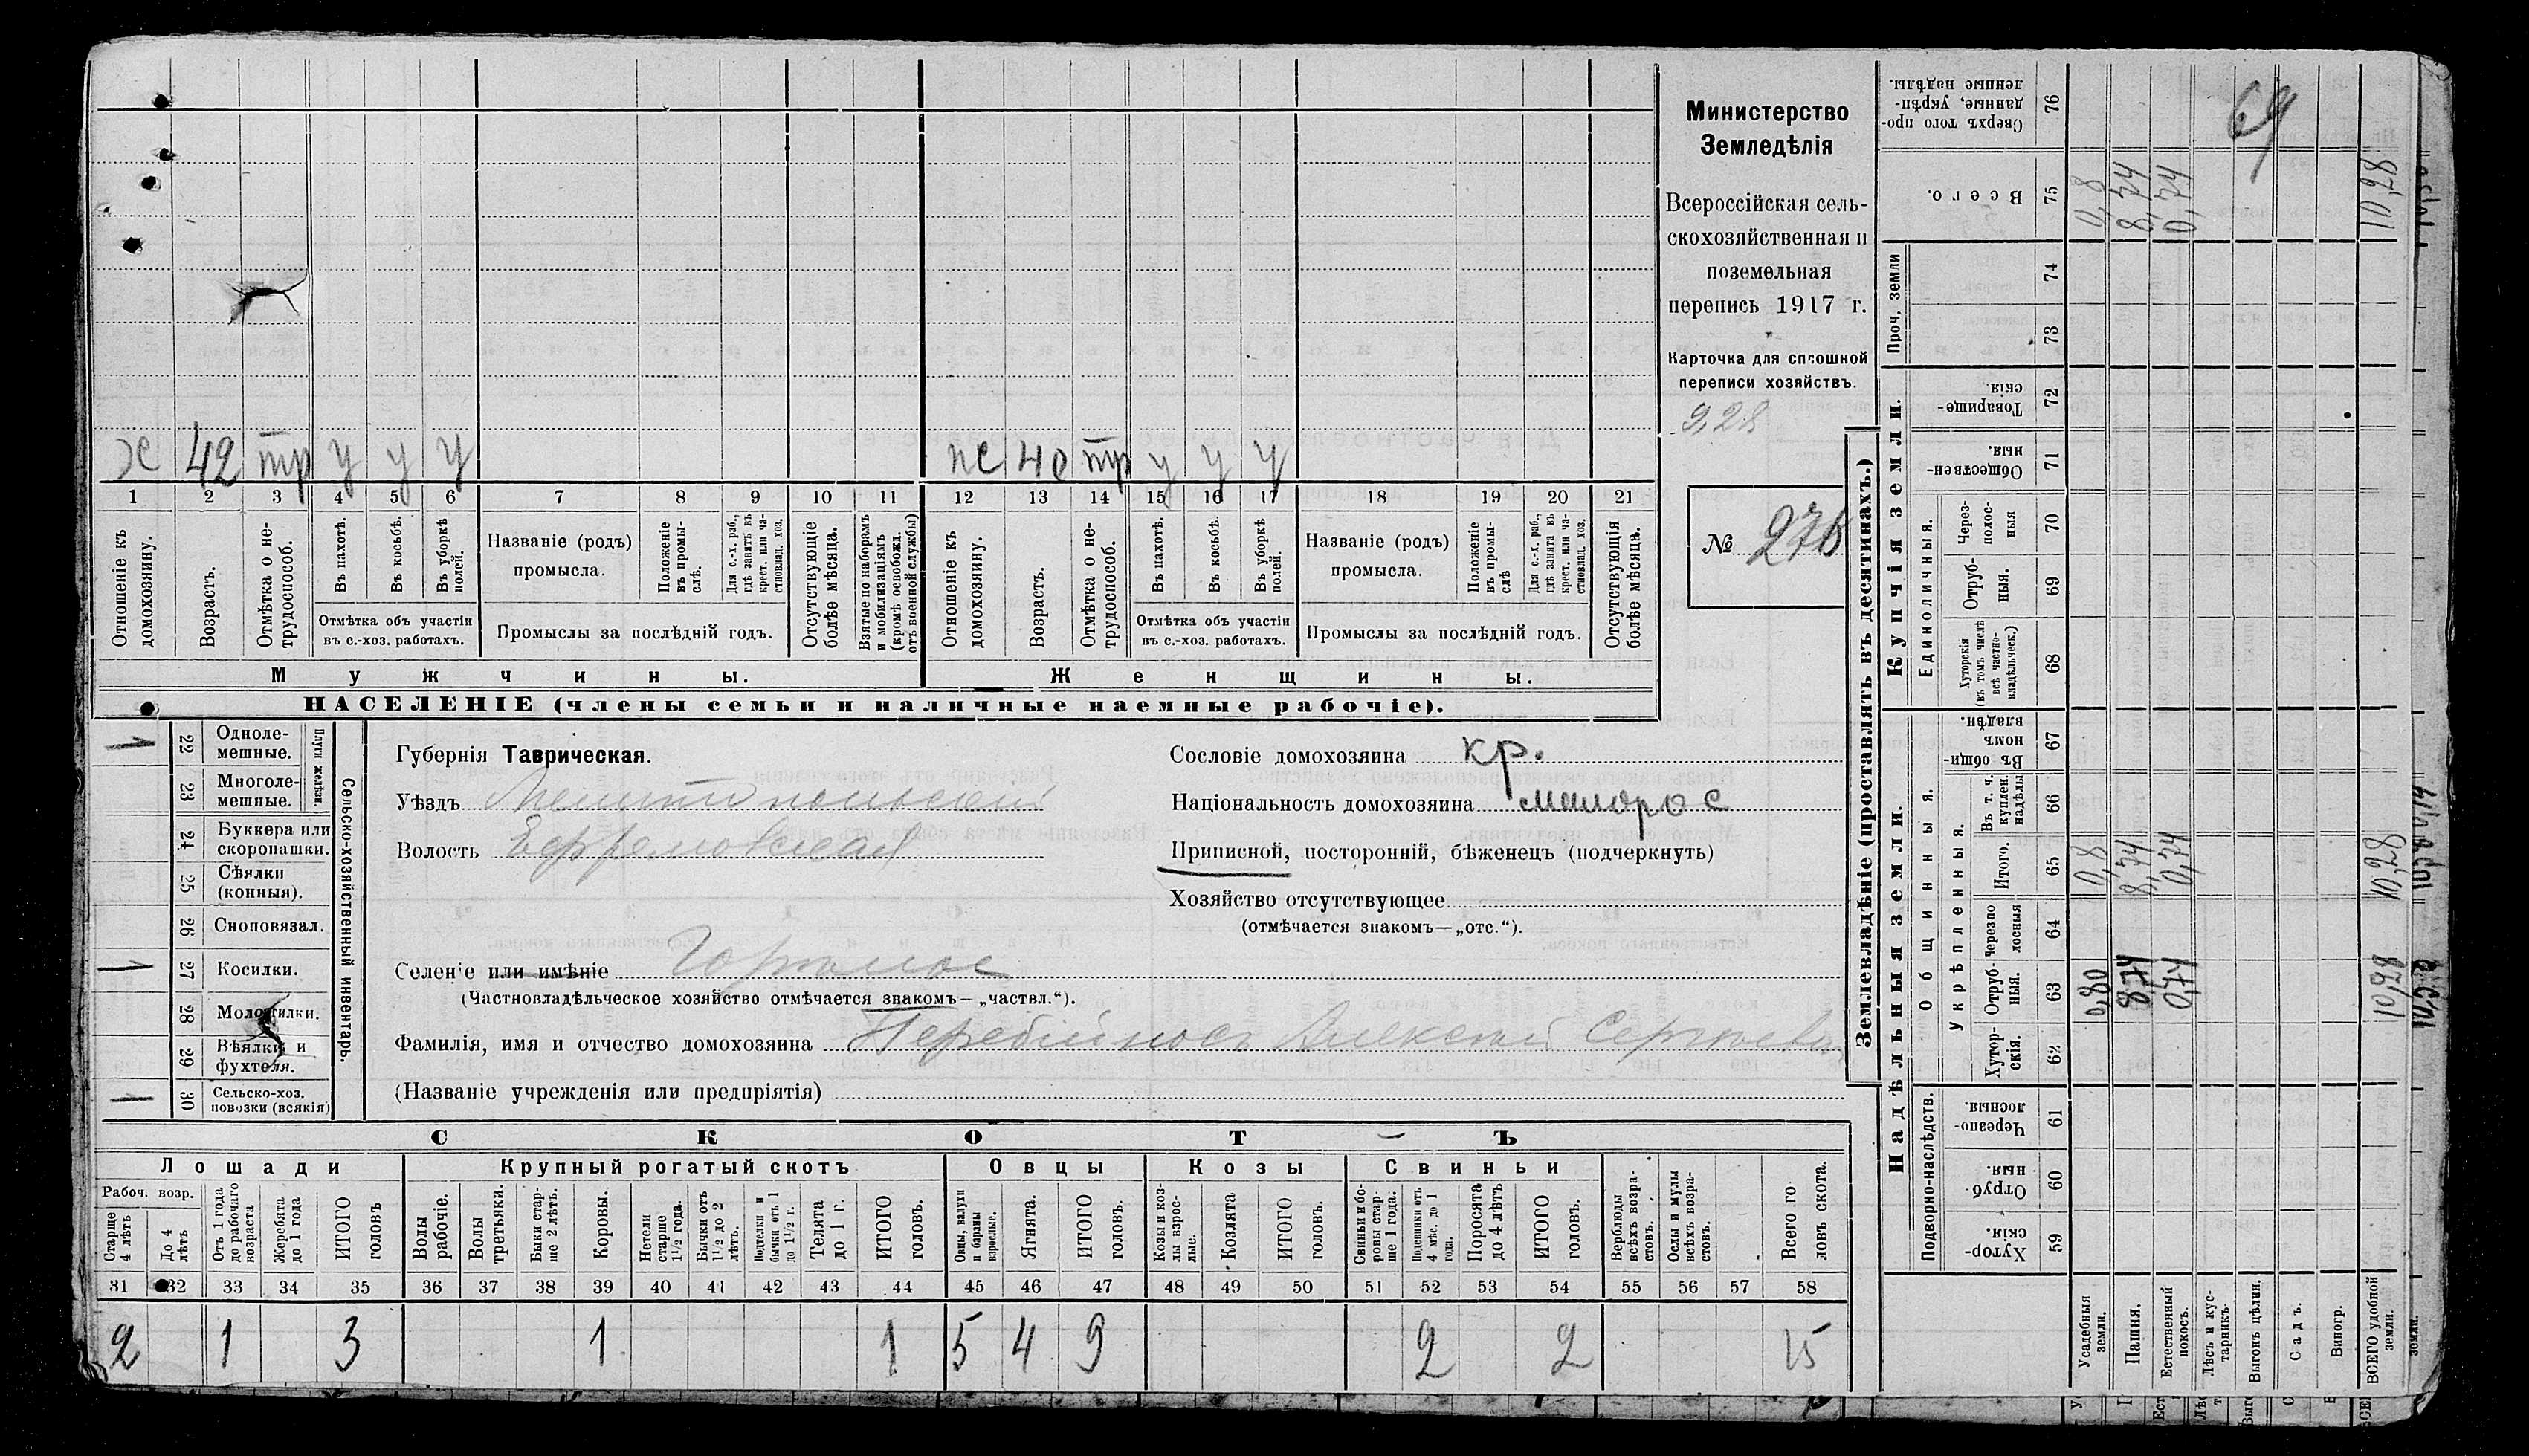 Министерство
Земледѣлія
Всероссійская сель-
скохозяйственная и
поземельная
перепись 1917 г.
Карточка для сплошной
переписи хозяйствъ.
9,28
№ 276
х 42 тр у у у
же 40 тр у у у
1 2 3 4 5 6 7 8 9 10 11 12 13 14 15 16 17 18 19 20 21
Отношеніе къ домохозяину.
Возрастъ.
Отмѣтка о не-трудоспособ.
Въ пахотѣ.
Въ косьбѣ.
Въ уборкѣ полей.
Отмѣтка объ участіи
въ с.-хоз. работахъ.
Названіе (родъ)
промысла.
Положеніе въ промы-слѣ.
Для с.-х. раб., гдѣ занятъ въ крест. или ча-стновлад. хоз.
Промыслы за послѣдній годъ.
Отсутствующіе болѣе мѣсяца.
Взятые по наборамъ и мобилизаціямъ (кромѣ освобожд. отъ военной службы)
Отношеніе къ домохозяину.
Возрастъ.
Отмѣтка о не-трудоспособ.
Въ пахотѣ.
Въ косьбѣ.
Въ уборкѣ полей.
Отмѣтка объ участіи
въ с.-хоз. работахъ.
Названіе (родъ)
промысла.
Положеніе въ промы-слѣ
Для с.-х. раб., гдѣ занята въ крест. или ча-стновлад. хоз.
Промыслы за послѣдній годъ.
Отсутствующія болѣе мѣсяца.
Мужчины.
Женщины.
НАСЕЛЕНІЕ (члены семьи и наличные наемные рабочіе).
Сельско-хозяйственный инвентарь.
Плуги желѣзн.
22 Одноле-мешные. 1
23 Многоле-мешные.
24 Буккера или скоропашки.
25 Сѣялки (конныя).
26 Сноповязал.
27 Косилки. 1
28 Молотилки.
29 Вѣялки и фухтеля.
30 Сельско-хоз. повозки (всякія) 1
Губернія Таврическая.
Уѣздъ Мелитопольский
Волость Ефремовская
Селеніе или имѣніе
(Частновладѣльческое хозяйство отмѣчается знакомъ— „частвл.“).
Фамилія, имя и отчество домохозяина Перебийнос Алексей Сергеевич
(Названіе учрежденія или предпріятія)
Сословіе домохозяина кр.
Національность домохозяина малорос
Приписной, посторонній, бѣженецъ (подчеркнуть)
Хозяйство отсутствующее
(отмѣчается знакомъ—„отс.“).
СКОТЪ
Лошади
Крупный рогатый скотъ
Овцы
Козы
Свиньи
Рабоч. возр.
Старше 4 лѣтъ
До 4 лѣтъ
Отъ 1 года до рабочаго возраста
Жеребята до 1 года
ИТОГО головъ
Волы рабочіе.
Волы третьяки.
Быки стар-ше 2 лѣтъ.
Коровы.
Нетели старше 1½ года.
Бычки отъ 1½ до 2 лѣтъ.
Подтелки и бычки отъ 1 до 1½ г.
Телята до 1 г.
ИТОГО головъ.
Овцы, валухи и бараны взрослые.
Ягнята.
ИТОГО головъ.
Козы и коз-лы взрос-лые.
Козлята
ИТОГО головъ.
Свиньи и бо-ровы стар-ше 1 года.
Подсвинки отъ 4 мѣс. до 1 года.
Поросята до 4 лѣтъ
ИТОГО головъ.
Верблюды всѣхъ возра-стовъ.
Ослы и мулы всѣхъ возра-стовъ.
Всего го-ловъ скота.
31 32 33 34 35 36 37 38 39 40 41 42 43 44 45 46 47 48 49 50 51 52 53 54 55 56 57 58
2 1 3 1 1 5 4 9 2 2 15
Землевладѣніе (проставлять въ десятинахъ.)
Надѣльныя земли.
Купчія земли.
Проч. земли
Подворно-наслѣдств.
Общинныя.
Укрѣпленныя.
Единоличныя.
Сверхъ того про-данные, укрѣп-ленные надѣлы. 76
Всего. 75 0,8 8,74 0,74 10,28
74
73
Товарище-скія. 72
Обществен-ныя. 71
Через-полос-ныя 70
Отруб-ныя. 69
Хуторскія (въ томъ числѣ всѣ частно-владѣльческ.) 68
Въ общин-номъ владѣн. 67
Въ т. ч. куплен. надѣлы 66
Итого. 65 0,8 8,74 0,74 10,28
Черезпо-лосныя 64
Отруб-ныя. 63 0,80 8,74 0,74 10,28
Хутор-скія. 62
Черезпо-лосныя. 61
Отруб-ныя. 60
Хутор-скія. 59
Усадебныя земли.
Пашня.
Естественный покосъ.
Лѣсъ и кус-тарникъ.
Выгонъ цѣлин.
Садъ.
Виногр.
ВСЕГО удобной земли.
69